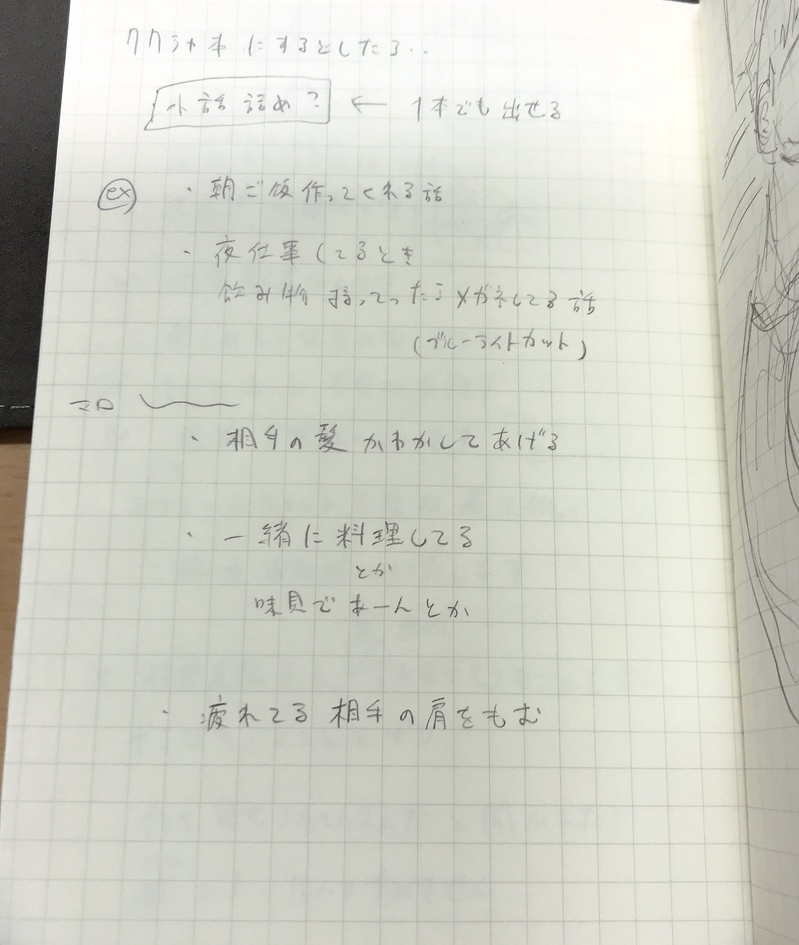 ククシャ本にするとしたら..
小話詰め? ← 1本でも出せる
ex ・朝ご飯作ってくれる話
・夜仕事してるとき
飲み物持ってったらメガネしてる話
(ブルーライトカット)
マロ
・相手の髪かわかしてあげる
・一緒に料理してる
とか
味見であーんとか
・疲れてる相手の肩をもむ